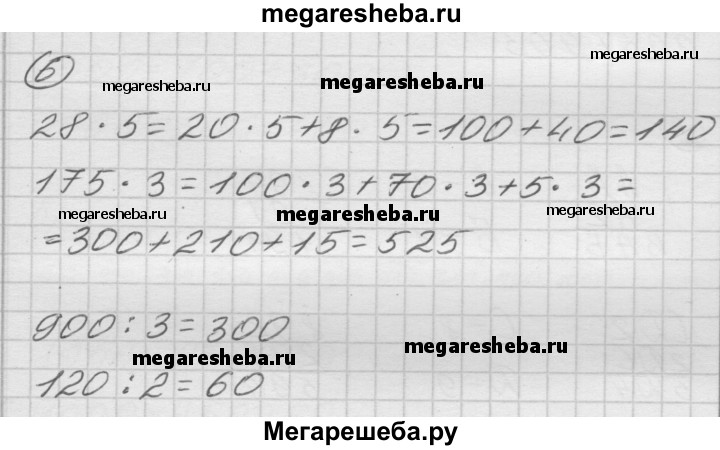 megaresheba.ru
б
megaresheba.ru
megaresheba.ru
megaresheba.ru
28 · 5 = 20 · 5 + 8 · 5 = 100 + 40 = 140
175 · 3 = 100 · 3 + 70 · 3 + 5 · 3 =
megaresheba.ru
megaresheba.ru
megaresheba.ru
= 300 + 210 + 15 = 525
900 : 3 = 300
megaresheba.ru
megaresheba.ru
120 : 2 = 60
Мегарешеба.ру